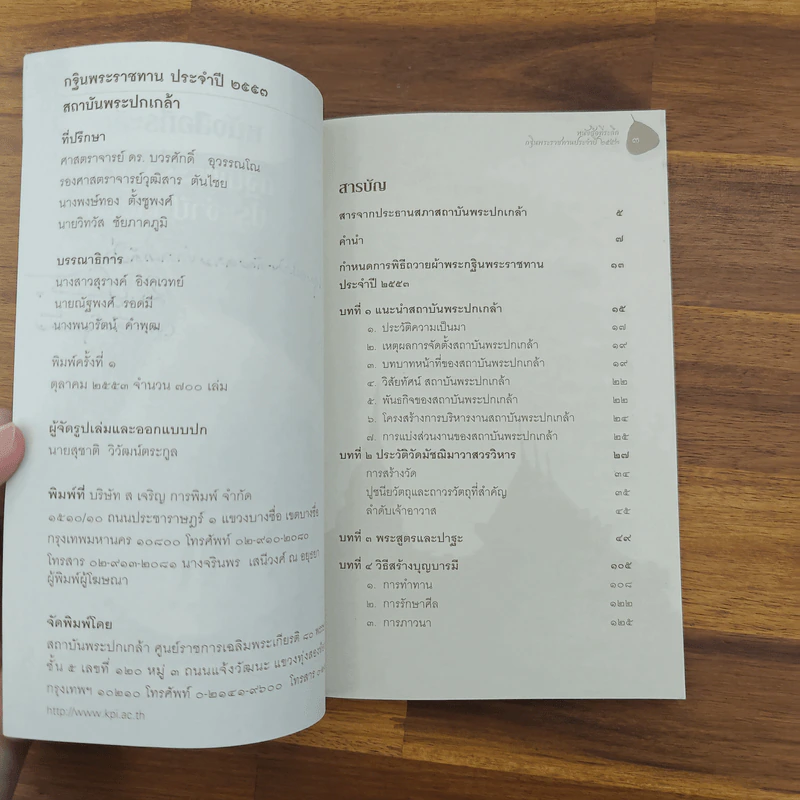 กฐินพระราชทาน ประจำปี ๒๕๕๓
สถาบันพระปกเกล้า
ที่ปรึกษา
ศาสตราจารย์ ดร. บวรศักดิ์ อุวรรณโณ
รองศาสตราจารย์วุฒิสาร ตันไชย
นางพงษ์ทอง ตั้งชูพงศ์
นายวิทวัส ชัยภาคภูมิ
บรรณาธิการ
นางสาวสุรางค์ อิงคเวทย์
นายณัฐพงศ์ รอดมี
นางพนารัตน์ คำพุฒ
พิมพ์ครั้งที่ ๑
ตุลาคม ๒๕๕๓ จำนวน ๗๐๐ เล่ม
ผู้จัดรูปเล่มและออกแบบปก
นายสุชาติ วิวัฒน์ตระกูล
พิมพ์ที่ บริษัท ส เจริญ การพิมพ์ จำกัด
๑๕๑๐/๑๐ ถนนประชาราษฎร์ ๑ แขวงบางซื่อ เขตบางซื่อ
กรุงเทพมหานคร ๑๐๘๐๐ โทรศัพท์ ๐๒-๙๑๐-๒๐๘๐
โทรสาร ๐๒-๙๑๓-๒๐๘๑ นางจรินพร เสนีวงศ์ ณ อยุธยา
ผู้พิมพ์ผู้โฆษณา
จัดพิมพ์โดย
สถาบันพระปกเกล้า ศูนย์ราชการเฉลิมพระเกียรติ ๘๐
ชั้น ๕ เลขที่ ๑๒๐ หมู่ ๓ ถนนแจ้งวัฒนะ แขวงทุ่งสองห้อง
กรุงเทพฯ ๑๐๒๑๐ โทรศัพท์ ๐-๒๑๔๑-๙๖๐๐ โทรสาร
http://www.kpi.ac.th
หนังสือที่ระลึก
กฐินพระราชทานประจำปี ๒๕๕๓
๓
สารบัญ
สารจากประธานสภาสถาบันพระปกเกล้า ๕
คำนำ ๗
กำหนดการพิธีถวายผ้าพระกฐินพระราชทาน ๑๓
ประจำปี ๒๕๕๓
บทที่ ๑ แนะนำสถาบันพระปกเกล้า ๑๕
๑. ประวัติความเป็นมา ๑๗
๒. เหตุผลการจัดตั้งสถาบันพระปกเกล้า ๑๙
๓. บทบาทหน้าที่ของสถาบันพระปกเกล้า ๑๙
๔. วิสัยทัศน์ สถาบันพระปกเกล้า ๒๒
๕. พันธกิจของสถาบันพระปกเกล้า ๒๒
๖. โครงสร้างการบริหารงานสถาบันพระปกเกล้า ๒๔
๗. การแบ่งส่วนงานของสถาบันพระปกเกล้า ๒๕
บทที่ ๒ ประวัติวัดมัชฌิมาวาสวรวิหาร ๒๗
การสร้างวัด ๓๔
ปูชนียวัตถุและถาวรวัตถุที่สำคัญ ๓๕
ลำดับเจ้าอาวาส ๔๕
บทที่ ๓ พระสูตรและปาฐะ ๔๙
บทที่ ๔ วิธีสร้างบุญบารมี ๑๐๕
๑. การทำทาน ๑๐๘
๒. การรักษาศีล ๑๒๒
๓. การภาวนา ๑๒๕